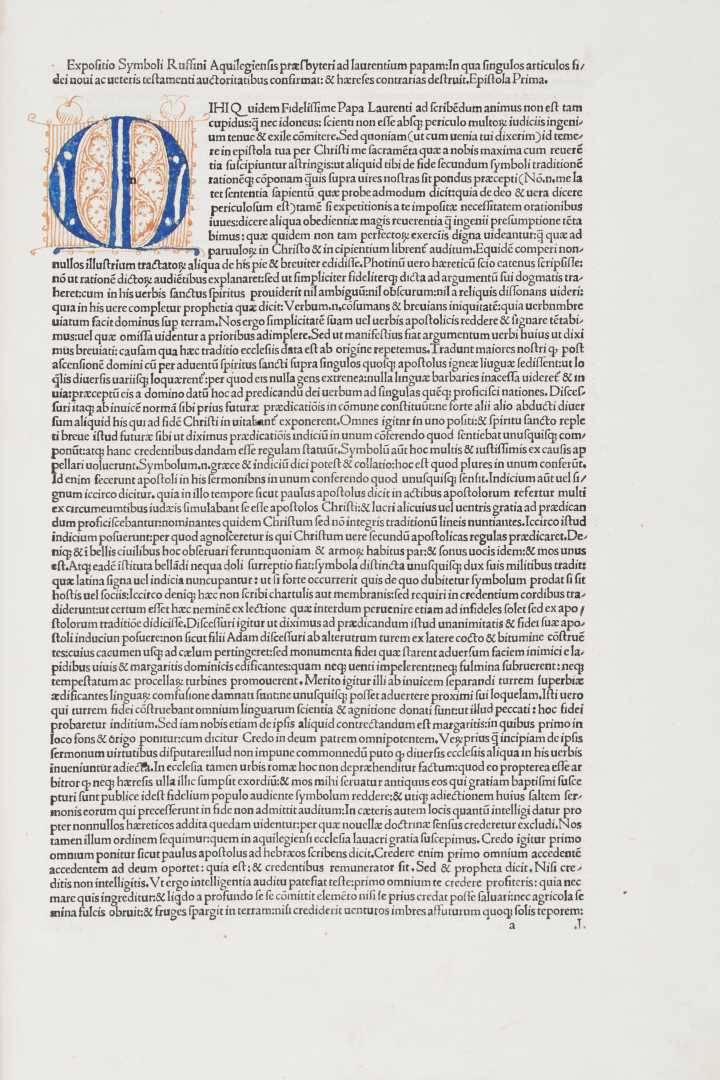 Expositio Symboli Ruffini Aquilegiensis præsbyteri ad laurentium papam:In qua singulos articulos fi/
dei noui ac ueteris testamenti auctoritatibus confirmat:& hæreses contrarias destruit.Epistola Prima.
M IHIQ uidem Fidelissime Papa Laurenti ad scribēdum animus non est tam
cupidus:q̄ nec idoneus: scienti non esse absq; periculo multoꝝ iudiciis ingeni/
um tenue & exile cōmitere.Sed quoniam (ut cum uenia tui dixerim)id teme/
re in epistola tua per Christi me sacramēta quæ a nobis maxima cum reuerē
tia suscipiuntur astringis:ut aliquid tibi de fide secundum symboli traditionē
rationēq; cōponam q̄uis supra uires nostras sit pondus præcepti(Nō.n.me la
tet sententia sapientū quæ probe admodum dicit:quia de deo & uera dicere
periculosum est)tamē si expetitionis a te impositæ necessitatem orationibus
iuues:dicere aliqua obedientiæ magis reuerentia q̄ ingenii presumptione tēta
bimus: quæ quidem non tam perfectoꝝ exerciis digna uideantur:q̄ quæ ad
paruuloꝝ in Christo & in cipientium librent̄ auditum.Equidē comperi non/
nullos illustrium tractatoꝝ aliqua de his pie & breuiter edidisse.Photinū uero hæreticū scio eatenus scripsisse:
nō ut rationē dictoꝝ audiētibus explanaret:sed ut simpliciter fideliterq; dicta ad argumentū sui dogmatis tra/
heret:cum in his uerbis sanctus spiritus prouiderit nil ambiguū:nil obscurum:nil a reliquis dissonans uideri:
quia in his uere completur prophetia quæ dicit:Verbum.n.cōsumans & breuians iniquitatē:quia uerbnmbre
uiatum facit dominus sup terram.Nos ergo simplicitatē suam uel uerbis apostolicis reddere & signare tētabi/
mus:uel quæ omissa uidentur a prioribus adimplere.Sed ut manifestius fiat argumentum uerbi huius ut dixi
mus breuiati: causam qua hæc traditio ecclesiis data est ab origine repetemus.Tradunt maiores nostri ꝙ post
ascensionē domini cū per aduentū spiritus sancti supra singulos quosq; apostolus igneæ liuguæ sedissent:ut lo
q̄lis diuersis uariisq; loquærent̄:per quod eis nulla gens extrenea:nulla linguæ barbaries inacessa uideret̄ & in
uia:præceptū eis a domino datū hoc ad predicandū dei uerbum ad singulas quēq; proficisci nationes. Disces/
suri itaq; ab inuicē normā sibi prius futuræ prædicatiōis in cōmune constituūt:ne forte alii alio abducti diuer
sum aliquid his qui ad fidē Christi in uitabant̄ exponerent.Omnes igitnr in uno positi:& spiritu sancto reple
ti breue istud futuræ sibi ut diximus prædicatiōis indiciū in unum cōferendo quod sentiebat unusquisq; com/
ponūt:atq; hanc credentibus dandam esse regulam statuūt.Symbolū aūt hoc multis & iustissimis ex causis ap
pellari uoluerunt.Symbolum.n.græce & indiciū dici potest & collatio:hoc est quod plures in unum conferūt.
Id enim fecerunt apostoli in his sermonibns in unum conferendo quod unusquisq; sensit.Indicium aūt uel si/
gnum iccirco dicitur, quia in illo tempore sicut paulus apostolus dicit in actibus apostolorum refertur multi
ex circumeuntibus iudæis simulabant se esse apostolos Christi:& lucri alicuius uel uentris gratia ad prædican
dum proficiscebantur:nominantes quidem Christum sed nō integris traditionū lineis nuntiantes.Iccirco istud
indicium posuerunt:per quod agnosceretur is qui Christum uere secundū apostolicas regulas prædicaret.De/
niq; & ī bellis ciuilibus hoc obseruari ferunt:quoniam & armoꝝ habitus par:& sonus uocis idem:& mos unus
est.Atq; eadē īstituta bellādi nequa doli surreptio fiat:symbola distincta unusquisq; dux suis militibus tradit:
quæ latina signa uel indicia nuncupantur : ut si forte occurrerit quis de quo dubitetur symbolum prodat si sit
hostis uel sociis:Iccirco deniq; hæc non scribi chartulis aut membranis:sed requiri in credentium cordibus tra/
diderunt:ut certum esset hæc neminē ex lectione quæ interdum peruenire etiam ad infideles solet sed ex apo /
stolorum traditiōe didicisse.Discessuri igitur ut diximus ad prædicandum istud unanimitatis & fidei suæ apo/
stoli induciun posuere:non sicut filii Adam discessuri ab alterutrum turem ex latere cocto & bitumine cōstruē
tes:cuius cacumen usq; ad cælum pertingeret:sed monumenta fidei quæ starent aduersum faciem inimici e la/
pidibus uiuis & margaritis dominicis edificantes:quam neq; uenti impelerent:neq; fulmina subruerent : neq;
tempestatum ac procellaꝝ turbines promouerent. Merito igitur illi ab inuicem separandi turrem superbiæ
ædificantes linguaꝝ comfusione damnati sunt:ne unusquisq; posset aduertere proximi sui loquelam.Isti uero
qui turrem fidei cōstruebant omnium linguarum scientia & agnitione donati sunt:ut illud peccati : hoc fidei
probaretur inditium.Sed iam nobis etiam de ipsis aliquid contrectandum est margaritis:in quibus primo in
loco fons & origo ponitur:cum dicitur Credo in deum patrem omnipotentem. Veꝝ prius q̄ incipiam de ipsis
sermonum uirtutibus disputare:illud non impune commonnedū puto ꝙ diuersis ecclesiis aliqua in his uerbis
inueniuntur adiecta.In ecclesia tamen urbis romæ hoc non depræhenditur factum:quod eo propterea esse ar
bitror ꝙ neq; hæresis ulla illic sumpsit exordiū:& mos mihi seruatur antiquus eos qui gratiam baptismi susce
pturi sunt publice idest fidelium populo audiente symbolum reddere:& utiq; adiectionem huius saltem ser/
monis eorum qui precesserunt in fide non admittit auditum:In cæteris autem locis quantū intelligi datur pro
pter nonnullos hæreticos addita quedam uidentur:per quæ nouellæ doctrinæ sensus crederetur excludi.Nos
tamen illum ordinem sequimur:quem in aquilegiensi ecclesia lauacri gratia suscepimus. Credo igitur primo
omnium ponitur sicut paulus apostolus ad hebræos scribens dicit.Credere enim primo omnium accedentē
accedentem ad deum oportet : quia est : & credentibus remunerator sit . Sed & propheta dicit. Nisi cre/
ditis non intelligitis. Vt ergo intelligentia auditu patefiat teste:primo omnium te credere profiteris : quia nec
mare quis ingreditur:& liq̄do a profundo se se cōmittit elemēto nisi se prius credat posse saluari:nec agricola se
mina sulcis obruit:& fruges spargit in terram:nisi crediderit uenturos imbres affuturum quoq; solis teporem:
a .I.